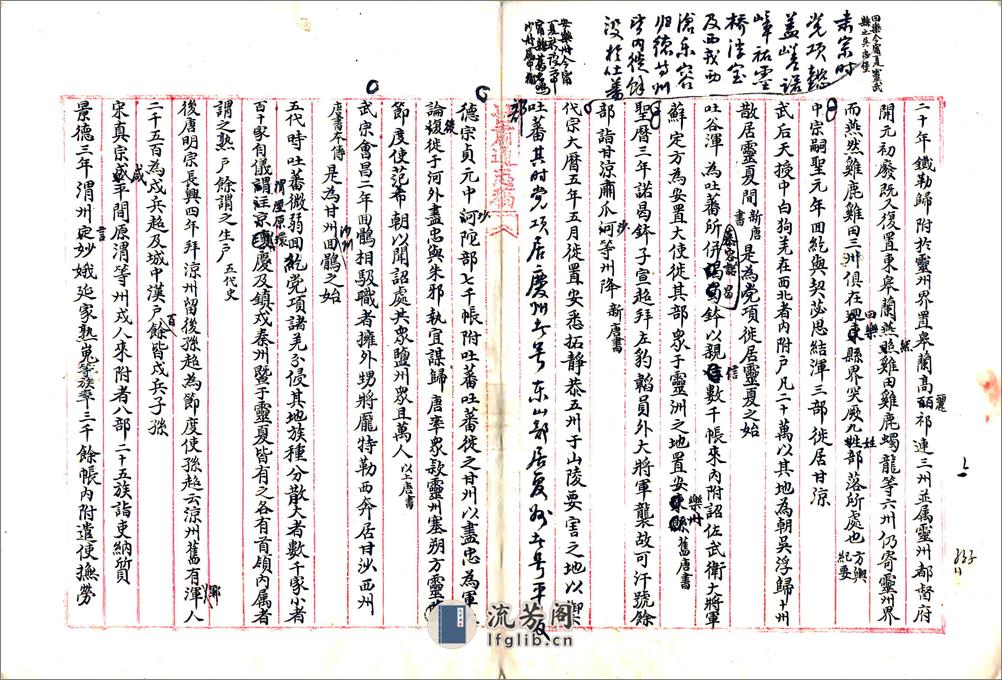 二十年鐵勒歸附於靈州界置皋蘭高麗祁連三州並属靈州都督府
開元初廢既又復置東皋蘭燕然燕山雞田雞鹿蠋龍等六州仍寄靈州界
而燕然雞鹿雞田三州俱在回樂縣界突厥九姓部落所處也 方輿紀要
中宗嗣聖元年回紇與契苾思結渾三部徙居甘涼
武后天授中白狗羌在西北者內附戶凡二十萬以其地為朝吳浮歸十州
散居靈夏間 新唐書 是為党項徙居靈夏之始
吐谷渾為吐蕃所併慕容諾曷鉢以親信數千帳來內附詔左武衛大將軍
蘇定方為安置大使徙其部眾于靈洲之地置安樂州 舊唐書
聖曆三年諾曷鉢子宣超拜左豹韜員外大將軍襲故可汗號餘
部詣甘涼肅瓜沙等州降 新唐書
代宗大曆五年五月徙置安悉拓靜恭五州于山陵要害之地以禦
吐蕃其時党項居慶州者号東山部居夏州者号平夏部
德宗貞元中沙陀部七千帳附吐蕃吐蕃徙之甘州以盡忠為軍
論後復徙于河外盡忠與朱邪執宜謀歸唐率眾款靈州塞朔方靈鹽
節度使范希朝以聞詔處共眾鹽州眾且萬人 以上唐書
武宗會昌二年回鶻相馺職者擁外甥將龐特勒西奔居甘沙西州
唐書本傳 是為甘州回鶻之始
五代時吐蕃微弱回紇党項諸羌分侵其地族種分散大者數千家小者
百十家自儀渭涇原環慶及鎮戎秦州暨于靈夏皆有之各有首領內属者
謂之熟戶餘謂之生戶 五代史
後唐明宗長興四年拜涼州留後孫超為節度使孫超云涼州舊有渾人
二千五百為戍兵超及城中漢戶百餘皆戍兵子孫
宋真宗咸平間原渭等州戎人來附者八部二十五族詣吏納質
景德三年渭州言妙娥延家熟嵬等族率三千餘帳內附遣使撫勞
回樂今甯夏靈武縣之吳忠堡
肅宗時
党項
安樂州今甯
流芳阁
lfglib.cn